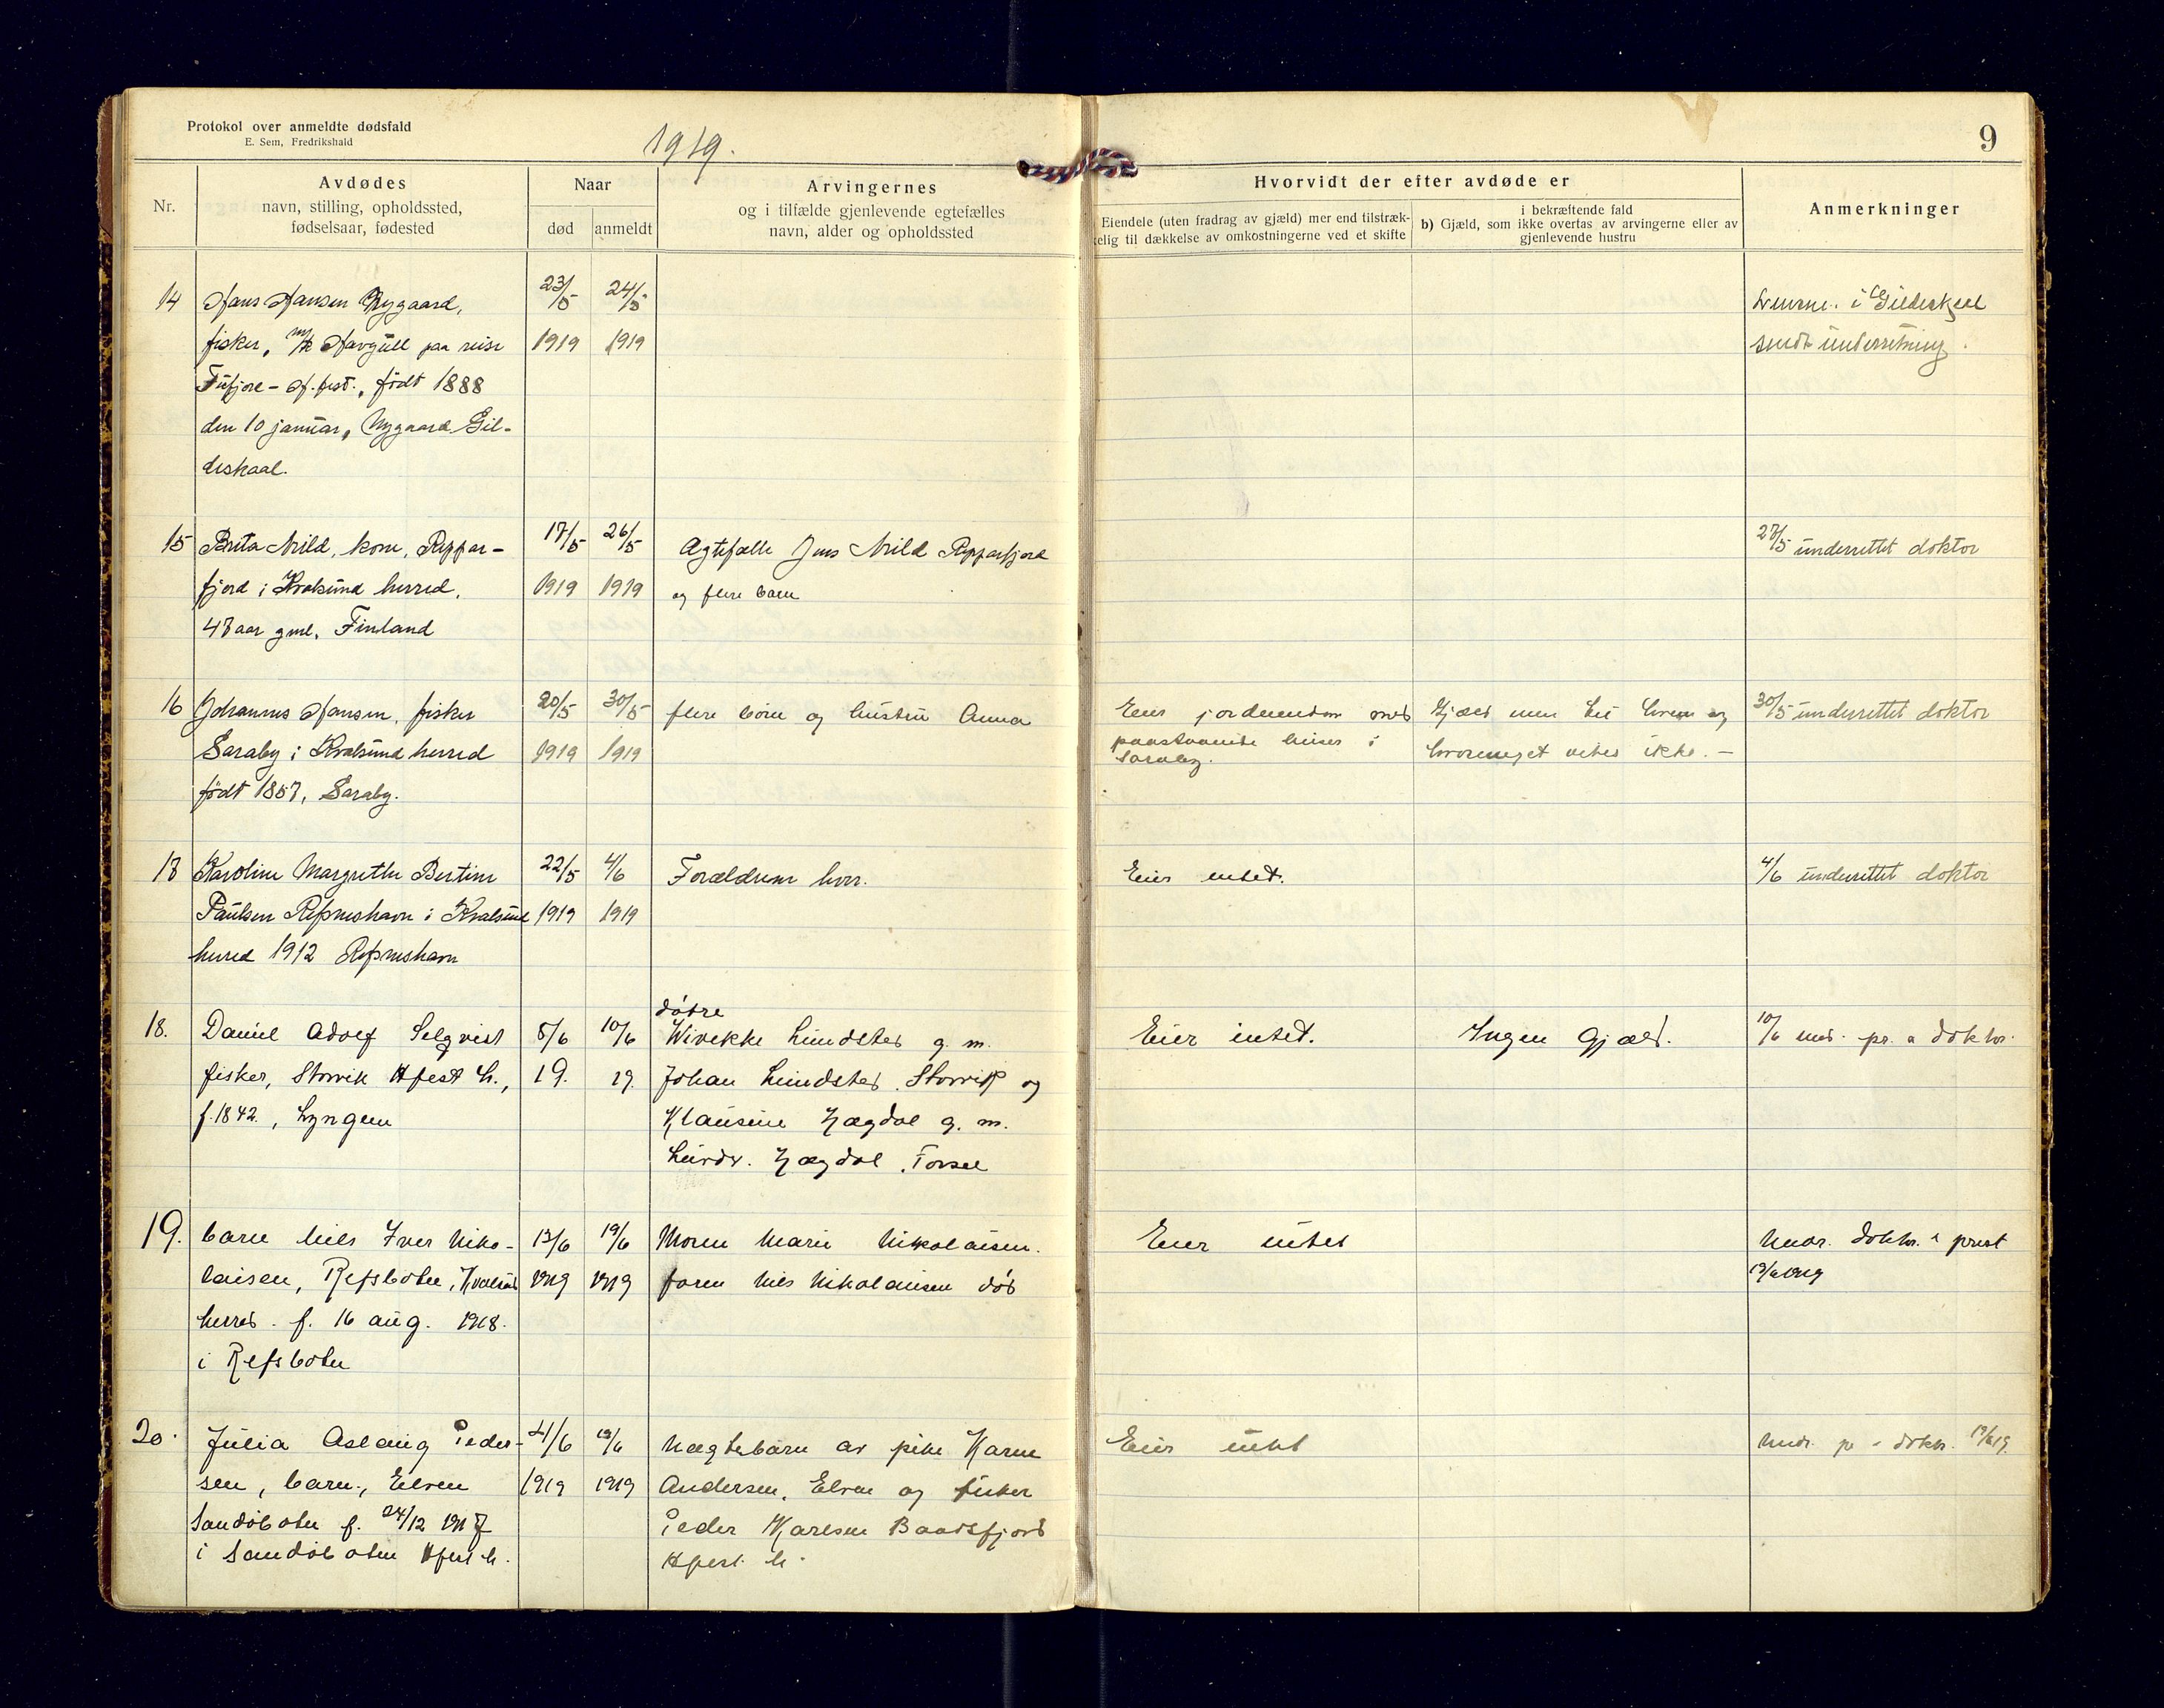 Protokol over anmeldte dødsfald
E. Sem, Fredrikshald
1919.
9
Nr.
Avdødes
navn, stilling, opholdssted,
fødselsaar, fødested
Naar
død
anmeldt
Arvingernes
og i tilfælde gjenlevende egtefælles
navn, alder og opholdssted
Hvorvidt der efter avdøde er
Eiendele (uten fradrag av gjæld) mer end tilstræk-
kelig til dækkelse av omkostningerne ved et skifte
i bekræftende fald
b) Gjæld, som ikke overtas av arvingerne eller av
gjenlevende hustru
Anmerkninger
14
Hans Hansen Nygaard,
fisker, m/k Havgull paa reise
Tufjore - H.fest., født 1888
den 10 januar, Nygaard Gil-
deskaal.
23/5
1919
24/5
1919
i Gildeskaal
sendt underretning.
15
Brita Mild, kone, Reppar-
fjord i Kvalsund herred,
47 aar gml. Finland
17/5
1919
26/5
1919
Ægtefælle Jens Mild Repparfjord
og flere barn
27/5 underrettet doktor
16
Johannes Hansen, fisker
Saraby i Kvalsund herred
født 1857, Saraby.
20/5
1919
30/5
1919
flere børn og hustru Anna
Eier jordeiendom med
paastaaende huser i
Saraby.
Gjæld men til hvem og
hvormeget vites ikke. -
30/5 underrettet doktor
17
Karoline Margrethe Bertine
Paulsen Repneshavn i Kvalsund
herred 1912 Repneshavn
22/5
1919
4/6
1919
Forældrene lever.
Eier intet.
4/6 underrettet doktor
18.
Daniel Adolf Selqvist
fisker, Storvik Hfest h.,
f. 1842., Lyngen
8/6
19.
10/6
19.
døtre
Wivekke Lundsted g. m.
Johan Lundsted, Storvik og
Klausine Hægdal g. m.
Hægdal,
Eier intet.
Ingen Gjæld.
10/6 und. pr. a doktor.
19.
barn Nils Iver Niko-
laisen, Refsbotn, Kvalsund
herred. f. 16 aug. 1918.
i Refsbotn
13/6
1919
19/6
1919
Moren Marie Nikolaisen.
faren Nils Nikolaisen død
Eier intet
Undr. doktor. prest
19/6 1919
20.
Julia Aslaug Peder-
sen, barn., Elven
Sandøbotn f. 24/12 1917
i Sandøbotn Hfest h.
1919
19/6
1919
Uægtebarn av pike Karen
Andersen, Elven og fisker
Peder Karlsen Baadsfjord
Hfest. h.
Eier intet
Undr. pr. doktr. 19/6 19.